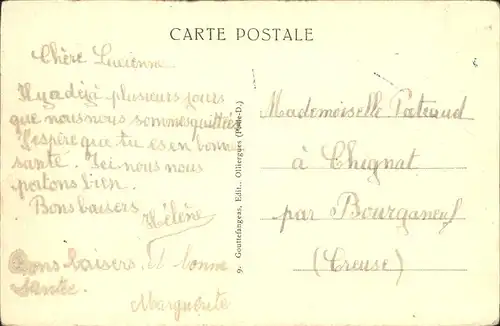 CARTE POSTALE
Chère Lucienne
Il y a déjà plusieurs jours
que nous nous sommes quittées
J'espère que tu es en bonne
santé. Ici nous nous
portons bien.
Bons baisers
Hélène
Bons baisers et bonne
Santée.
Marguerite
9. Gouttefangeas, Edit., Olliergues (P.-de-D.)
Mademoiselle Pateaud
à Chignat
par Bourganeuf
(Creuse)